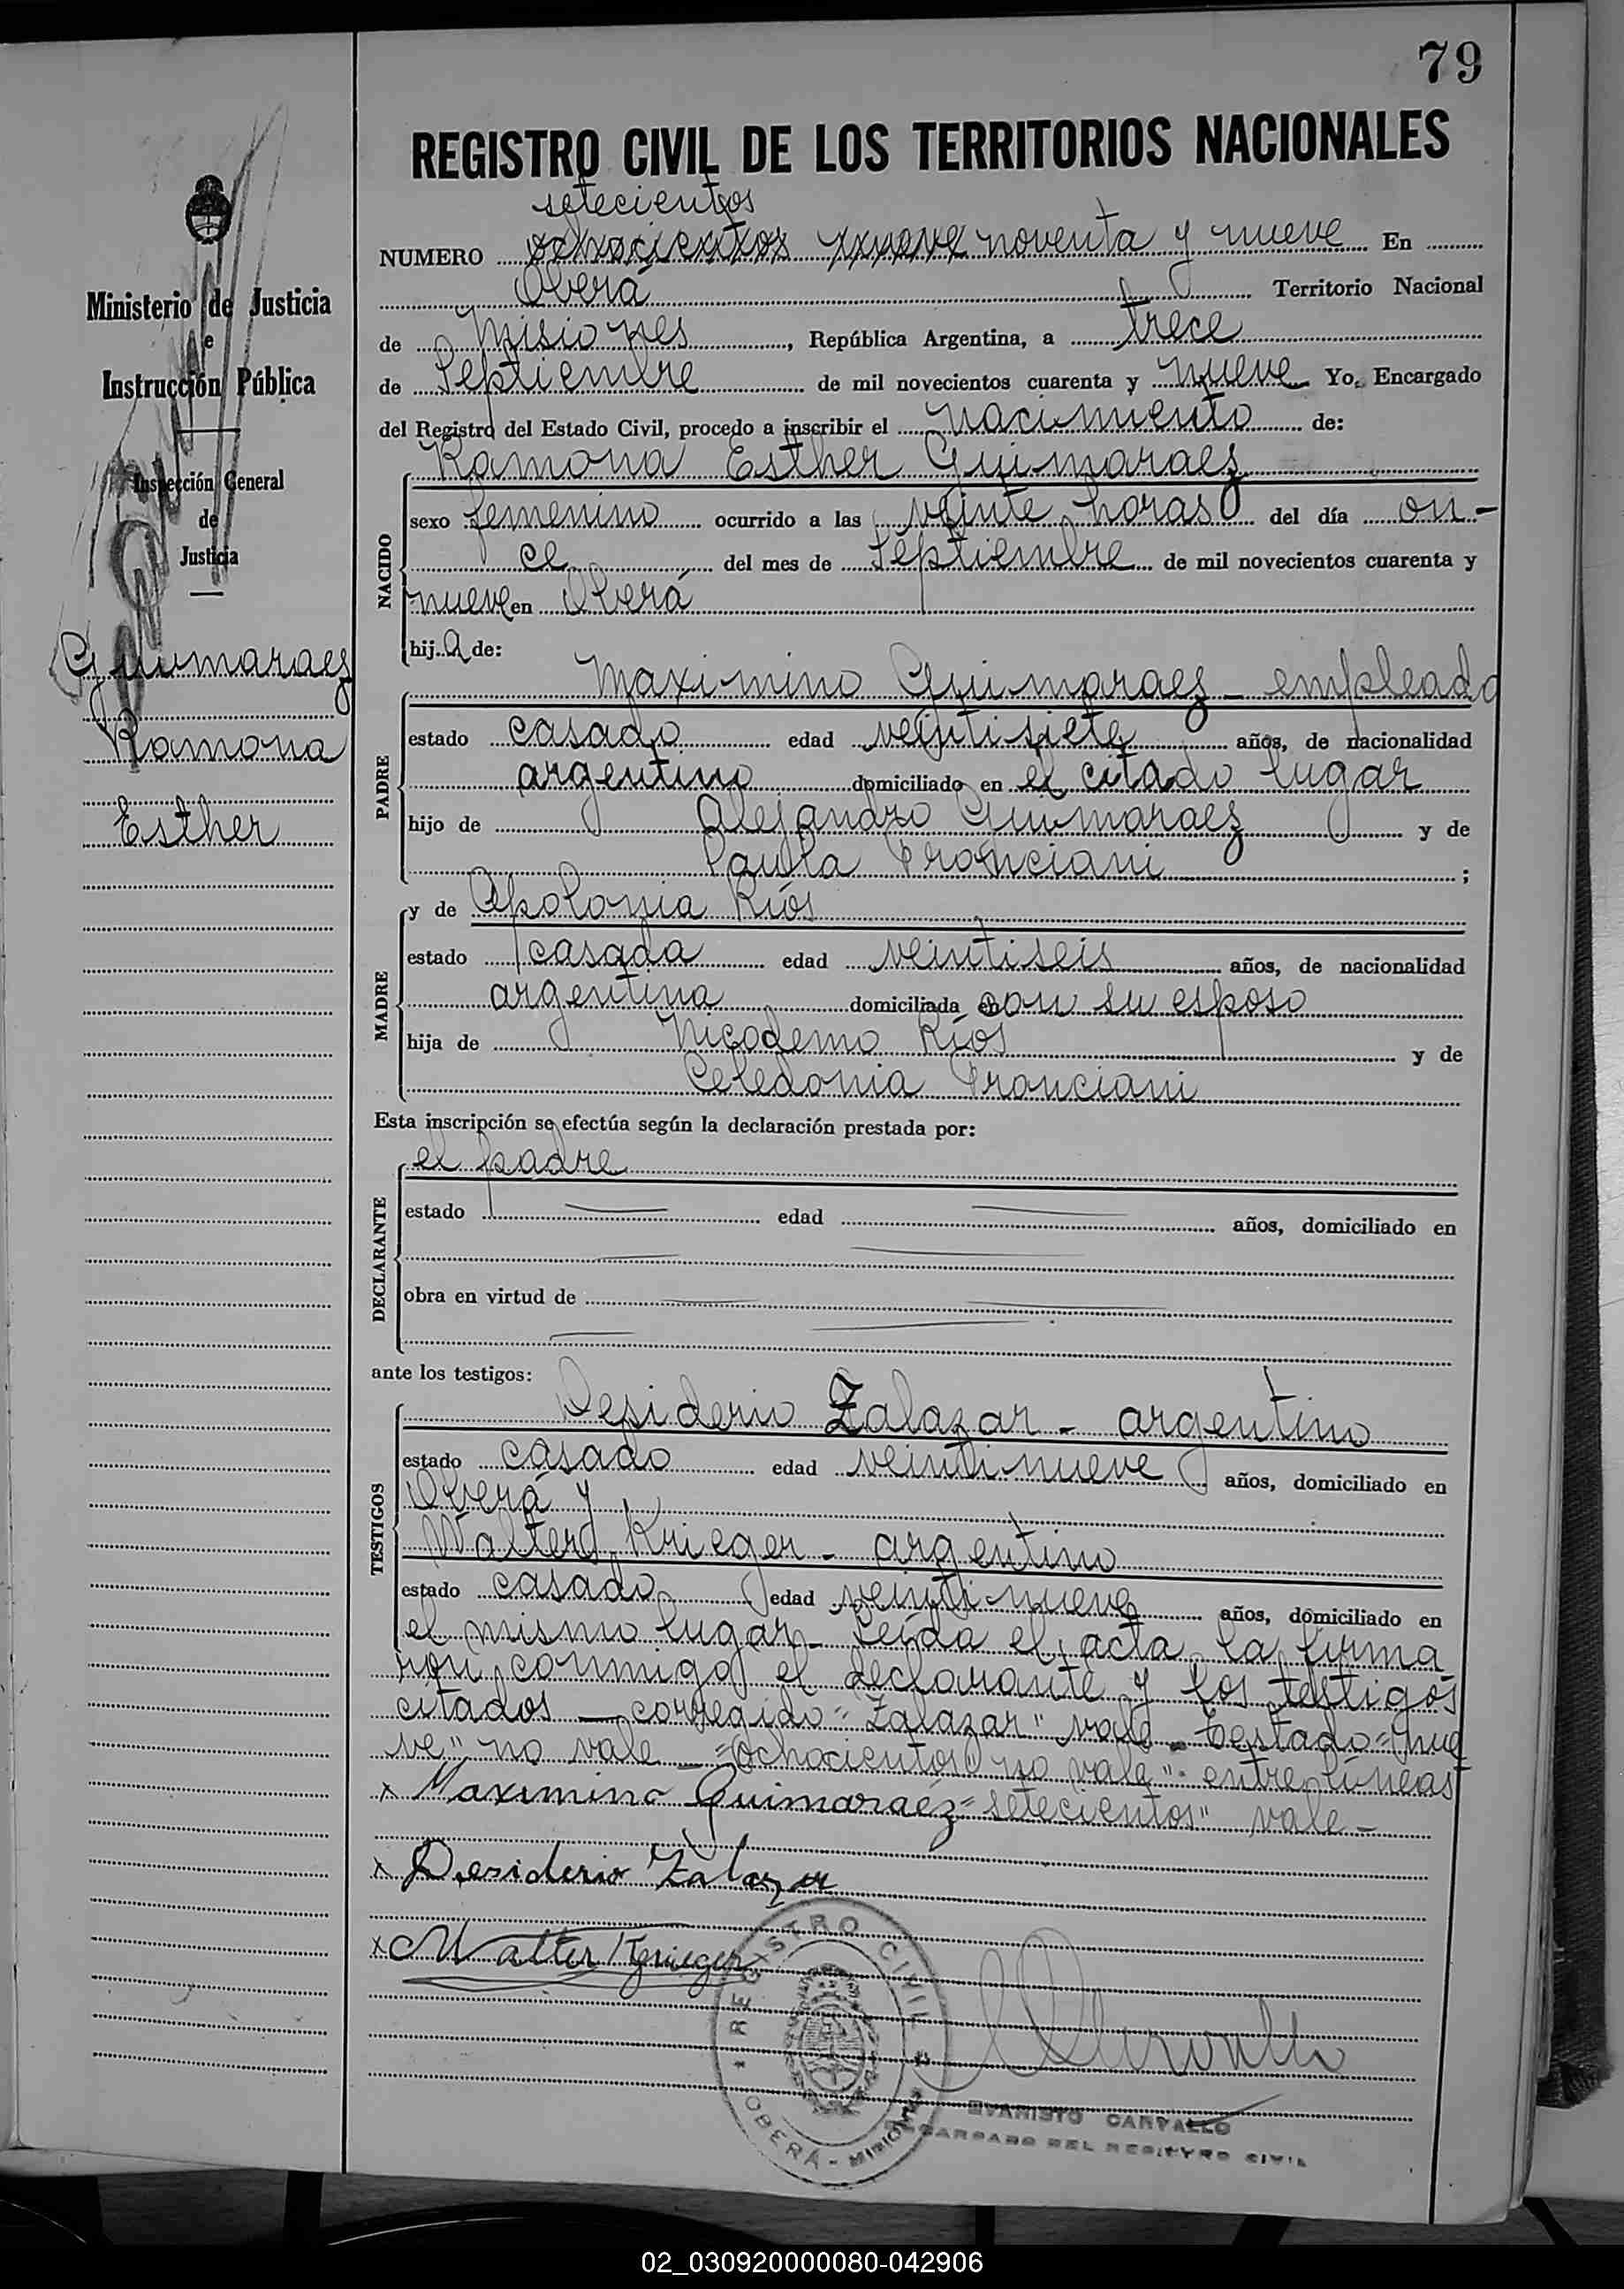 79
REGISTRO CIVIL DE LOS TERRITORIOS NACIONALES
setecientos
NUMERO ochocientos nueve noventa y nueve En
Oberá Territorio Nacional
de Misiones, República Argentina, a trece
de Septiembre de mil novecientos cuarenta y nueve Yo, Encargado
del Registro del Estado Civil, procedo a inscribir el nacimiento de:
Ramona Esther Guimaraez
NACIDO
sexo femenino ocurrido a las veinte horas del día on-
ce del mes de Septiembre de mil novecientos cuarenta y
nueve en Oberá
hija de:
PADRE
Maximino Guimaraez - empleado
estado casado edad veintisiete años, de nacionalidad
argentino domiciliado en el citado lugar
hijo de Alejandro Guimaraez y de
Paula Pronciani;
MADRE
y de Apolonia Ríos
estado casada edad veintiseis años, de nacionalidad
argentina domiciliada en con su esposo
hija de Nicodemo Ríos y de
Celedonia Pronciani
Esta inscripción se efectúa según la declaración prestada por:
DECLARANTE
el padre
estado edad años, domiciliado en
obra en virtud de
ante los testigos:
TESTIGOS
Desiderio Zalazar - argentino
estado casado edad veintinueve años, domiciliado en
Oberá y
Walter Krieger - argentino
estado casado edad veintinueve años, domiciliado en
el mismo lugar - Leída el acta la firma
ron conmigo el declarante y los testigos
citados — corregido "Zalazar" vale - testado = "nue
ve" no vale - "ochocientos" no vale" - entre líneas
x Maximino Guimaraez = setecientos" vale -
x Desiderio Zalazar
x Walter Krieger
REGISTRO CIVIL
OBERÁ - MISIONES
EVARISTO CARVALLO
ENCARGADO DEL REGISTRO CIVIL
Ministerio de Justicia
e
Instrucción Pública
Inspección General
de
Justicia
Guimaraez
Ramona
Esther
02_030920000080-042906